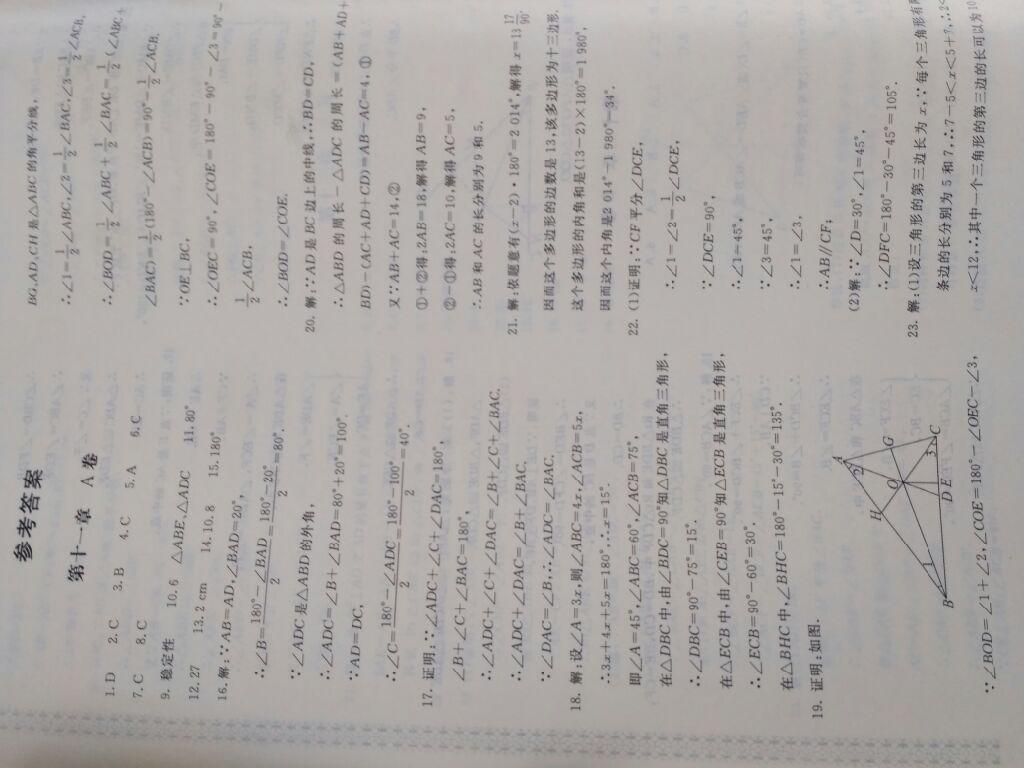 参考答案
第十一章 A 卷
1. D 2. C 3. B 4. C 5. A 6. C
7. C 8. C
9. 稳定性 10. 6 △ABE,△ADC 11. 80°
12. 27 13. 2 cm 14. 10.8 15. 180°
16. 解:∵AB=AD,∠BAD=20°,
∴∠B=(180°-∠BAD)/2=(180°-20°)/2=80°.
∵∠ADC 是△ABD 的外角,
∴∠ADC=∠B+∠BAD=80°+20°=100°.
∵AD=DC,
∴∠C=(180°-∠ADC)/2=(180°-100°)/2=40°.
17. 证明:∵∠ADC+∠C+∠DAC=180°,
∠B+∠C+∠BAC=180°,
∴∠ADC+∠C+∠DAC=∠B+∠C+∠BAC.
∴∠ADC+∠DAC=∠B+∠BAC.
∵∠DAC=∠B,∴∠ADC=∠BAC.
18. 解:设∠A=3x,则∠ABC=4x,∠ACB=5x,
∴3x+4x+5x=180°.∴x=15°.
即∠A=45°,∠ABC=60°,∠ACB=75°,
在△DBC 中,由∠BDC=90°知△DBC 是直角三角形,
∴∠DBC=90°-75°=15°.
在△ECB 中,由∠CEB=90°知△ECB 是直角三角形,
∴∠ECB=90°-60°=30°.
在△BHC 中,∠BHC=180°-15°-30°=135°.
19. 证明:如图.
A
H
O
G
2
1
3
B
D
E
C
∵∠BOD=∠1+∠2,∠COE=180°-∠OEC-∠3,
BG,AD,CH 是△ABC 的角平分线,
∴∠1=1/2∠ABC,∠2=1/2∠BAC,∠3=1/2∠ACB,
∴∠BOD=1/2∠ABC+1/2∠BAC=1/2(∠ABC+
∠BAC)=1/2(180°-∠ACB)=90°-1/2∠ACB.
∵OE⊥BC,
∴∠OEC=90°,∠COE=180°-90°-∠3=90°-
1/2∠ACB,
∴∠BOD=∠COE.
20. 解:∵AD 是 BC 边上的中线,∴BD=CD,
∴△ABD 的周长-△ADC 的周长=(AB+AD+
BD)-(AC+AD+CD)=AB-AC=4,①
又∵AB+AC=14,②
①+②得2AB=18,解得 AB=9,
②-①得2AC=10,解得 AC=5,
∴AB 和 AC 的长分别为 9 和 5.
21. 解:依题意有(x-2)·180°=2 014°,解得 x=13 17/90,
因而这个多边形的边数是13,该多边形为十三边形.
这个多边形的内角和是(13-2)×180°=1 980°,
因而这个内角是2 014°-1 980°=34°.
22. (1)证明:∵CF 平分∠DCE,
∴∠1=∠2=1/2∠DCE,
∵∠DCE=90°,
∴∠1=45°,
∵∠3=45°,
∴∠1=∠3,
∴AB//CF;
(2)解:∵∠D=30°,∠1=45°,
∴∠DFC=180°-30°-45°=105°.
23. 解:(1)设三角形的第三边长为 x,∵每个三角形有两
条边的长分别为 5 和 7,∴7-5<x<5+7,∴2<
x<12.∴其中一个三角形的第三边的长可以为 10